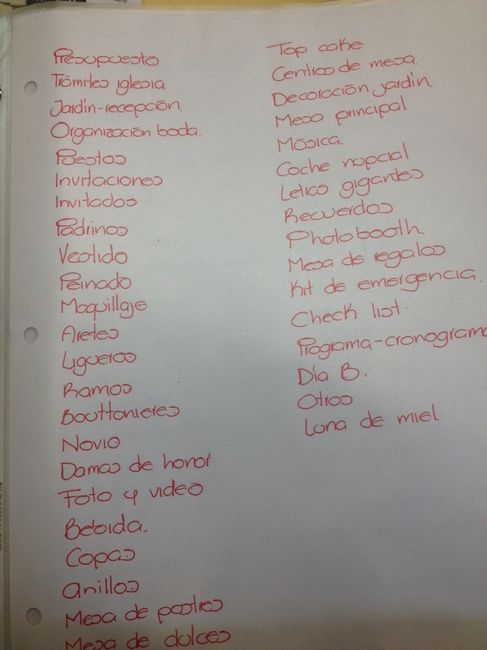 Presupuesto
Trámites iglesia
Jardín-recepción
Organización boda.
Puestos
Invitaciones
Invitados
Padrinos
Vestido
Peinado
Maquillaje
Aretes
Ligueros
Ramos
Bouttonieres
Novio
Damas de honor
Foto y video
Bebida.
Copas
Anillos
Mesa de postres
Mesa de dulces
Top cake
Centros de mesa.
Decoración jardín.
Mesa principal
Música.
Coche nupcial
Letras gigantes
Recuerdos
Photobooth
Mesa de regalos
Kit de emergencia
Check list.
Programa-cronograma
Día B.
Otros
Luna de miel